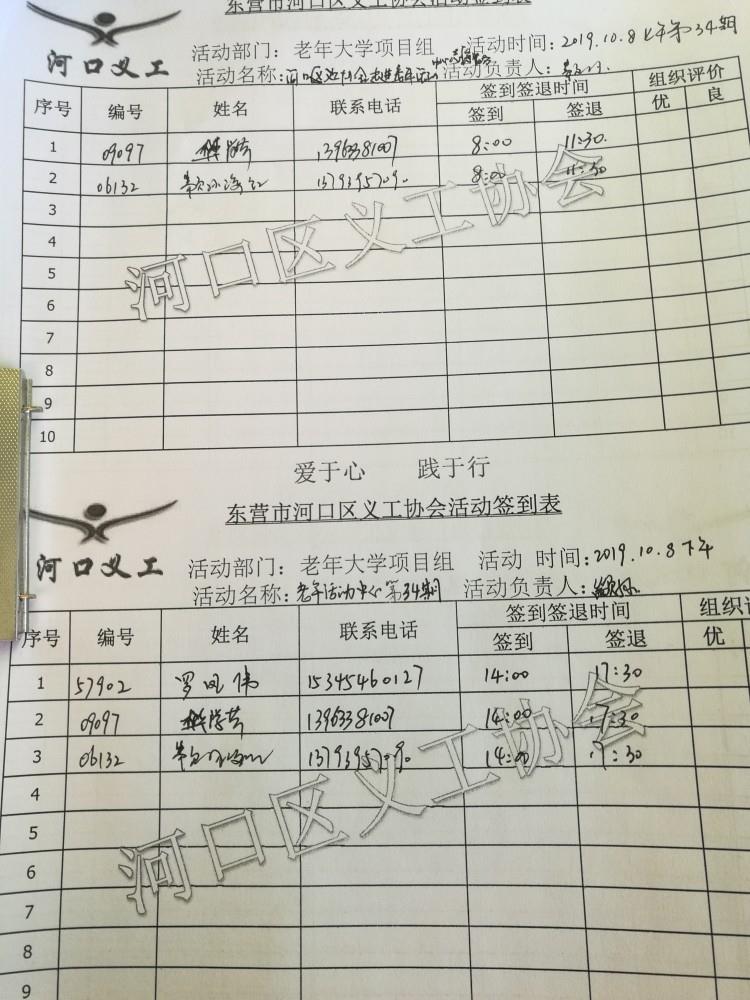 东营市河口区义工协会活动签到表
河口义工
活动部门：老年大学项目组 活动时间：2019.10.8上午第34期
活动名称： 活动负责人：
序号 编号 姓名 联系电话 签到签退时间 组织评价
签到 签退 优 良
1 09097 13963381007 8:00 11:30
2 06132 8:00 11:30
3
4
5
6
7
8
9
10
河口区义工协会
爱于心 践于行
东营市河口区义工协会活动签到表
河口义工
活动部门：老年大学项目组 活动 时间：2019.10.8下午
活动名称：老年活动中心第34期 活动负责人：
序号 编号 姓名 联系电话 签到签退时间 组织
签到 签退 优
1 57902 罗凤伟 15345460127 14:00 17:30
2 09097 13963381007 14:00 17:30
3 06132 14:00 17:30
4
5
6
7
8
9
河口区义工协会